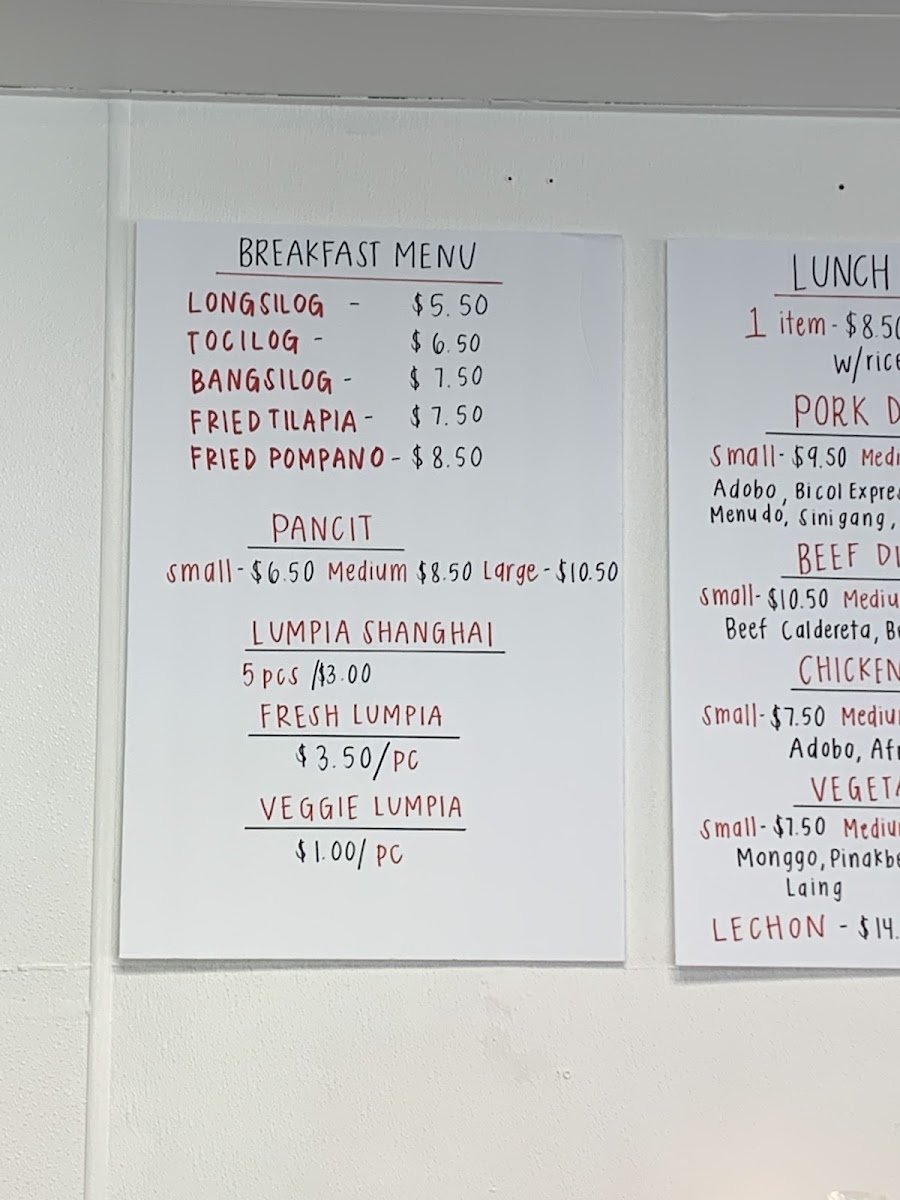 BREAKFAST MENU
LONGSILOG - $5.50
TOCILOG - $6.50
BANGSILOG - $7.50
FRIED TILAPIA - $7.50
FRIED POMPANO - $8.50
PANCIT
Small - $6.50 Medium $8.50 Large - $10.50
LUMPIA SHANGHAI
5 pcs /$3.00
FRESH LUMPIA
$3.50/PC
VEGGIE LUMPIA
$1.00/ PC
LUNCH
1 item - $8.50
w/rice
PORK
Small - $9.50
Adobo, Bicol
Menudo, Sinigang,
BEEF
Small - $10.50
Beef Caldereta,
CHICKEN
Small - $7.50
Adobo,
Small - $7.50
Monggo,
Laing
LECHON - $14.